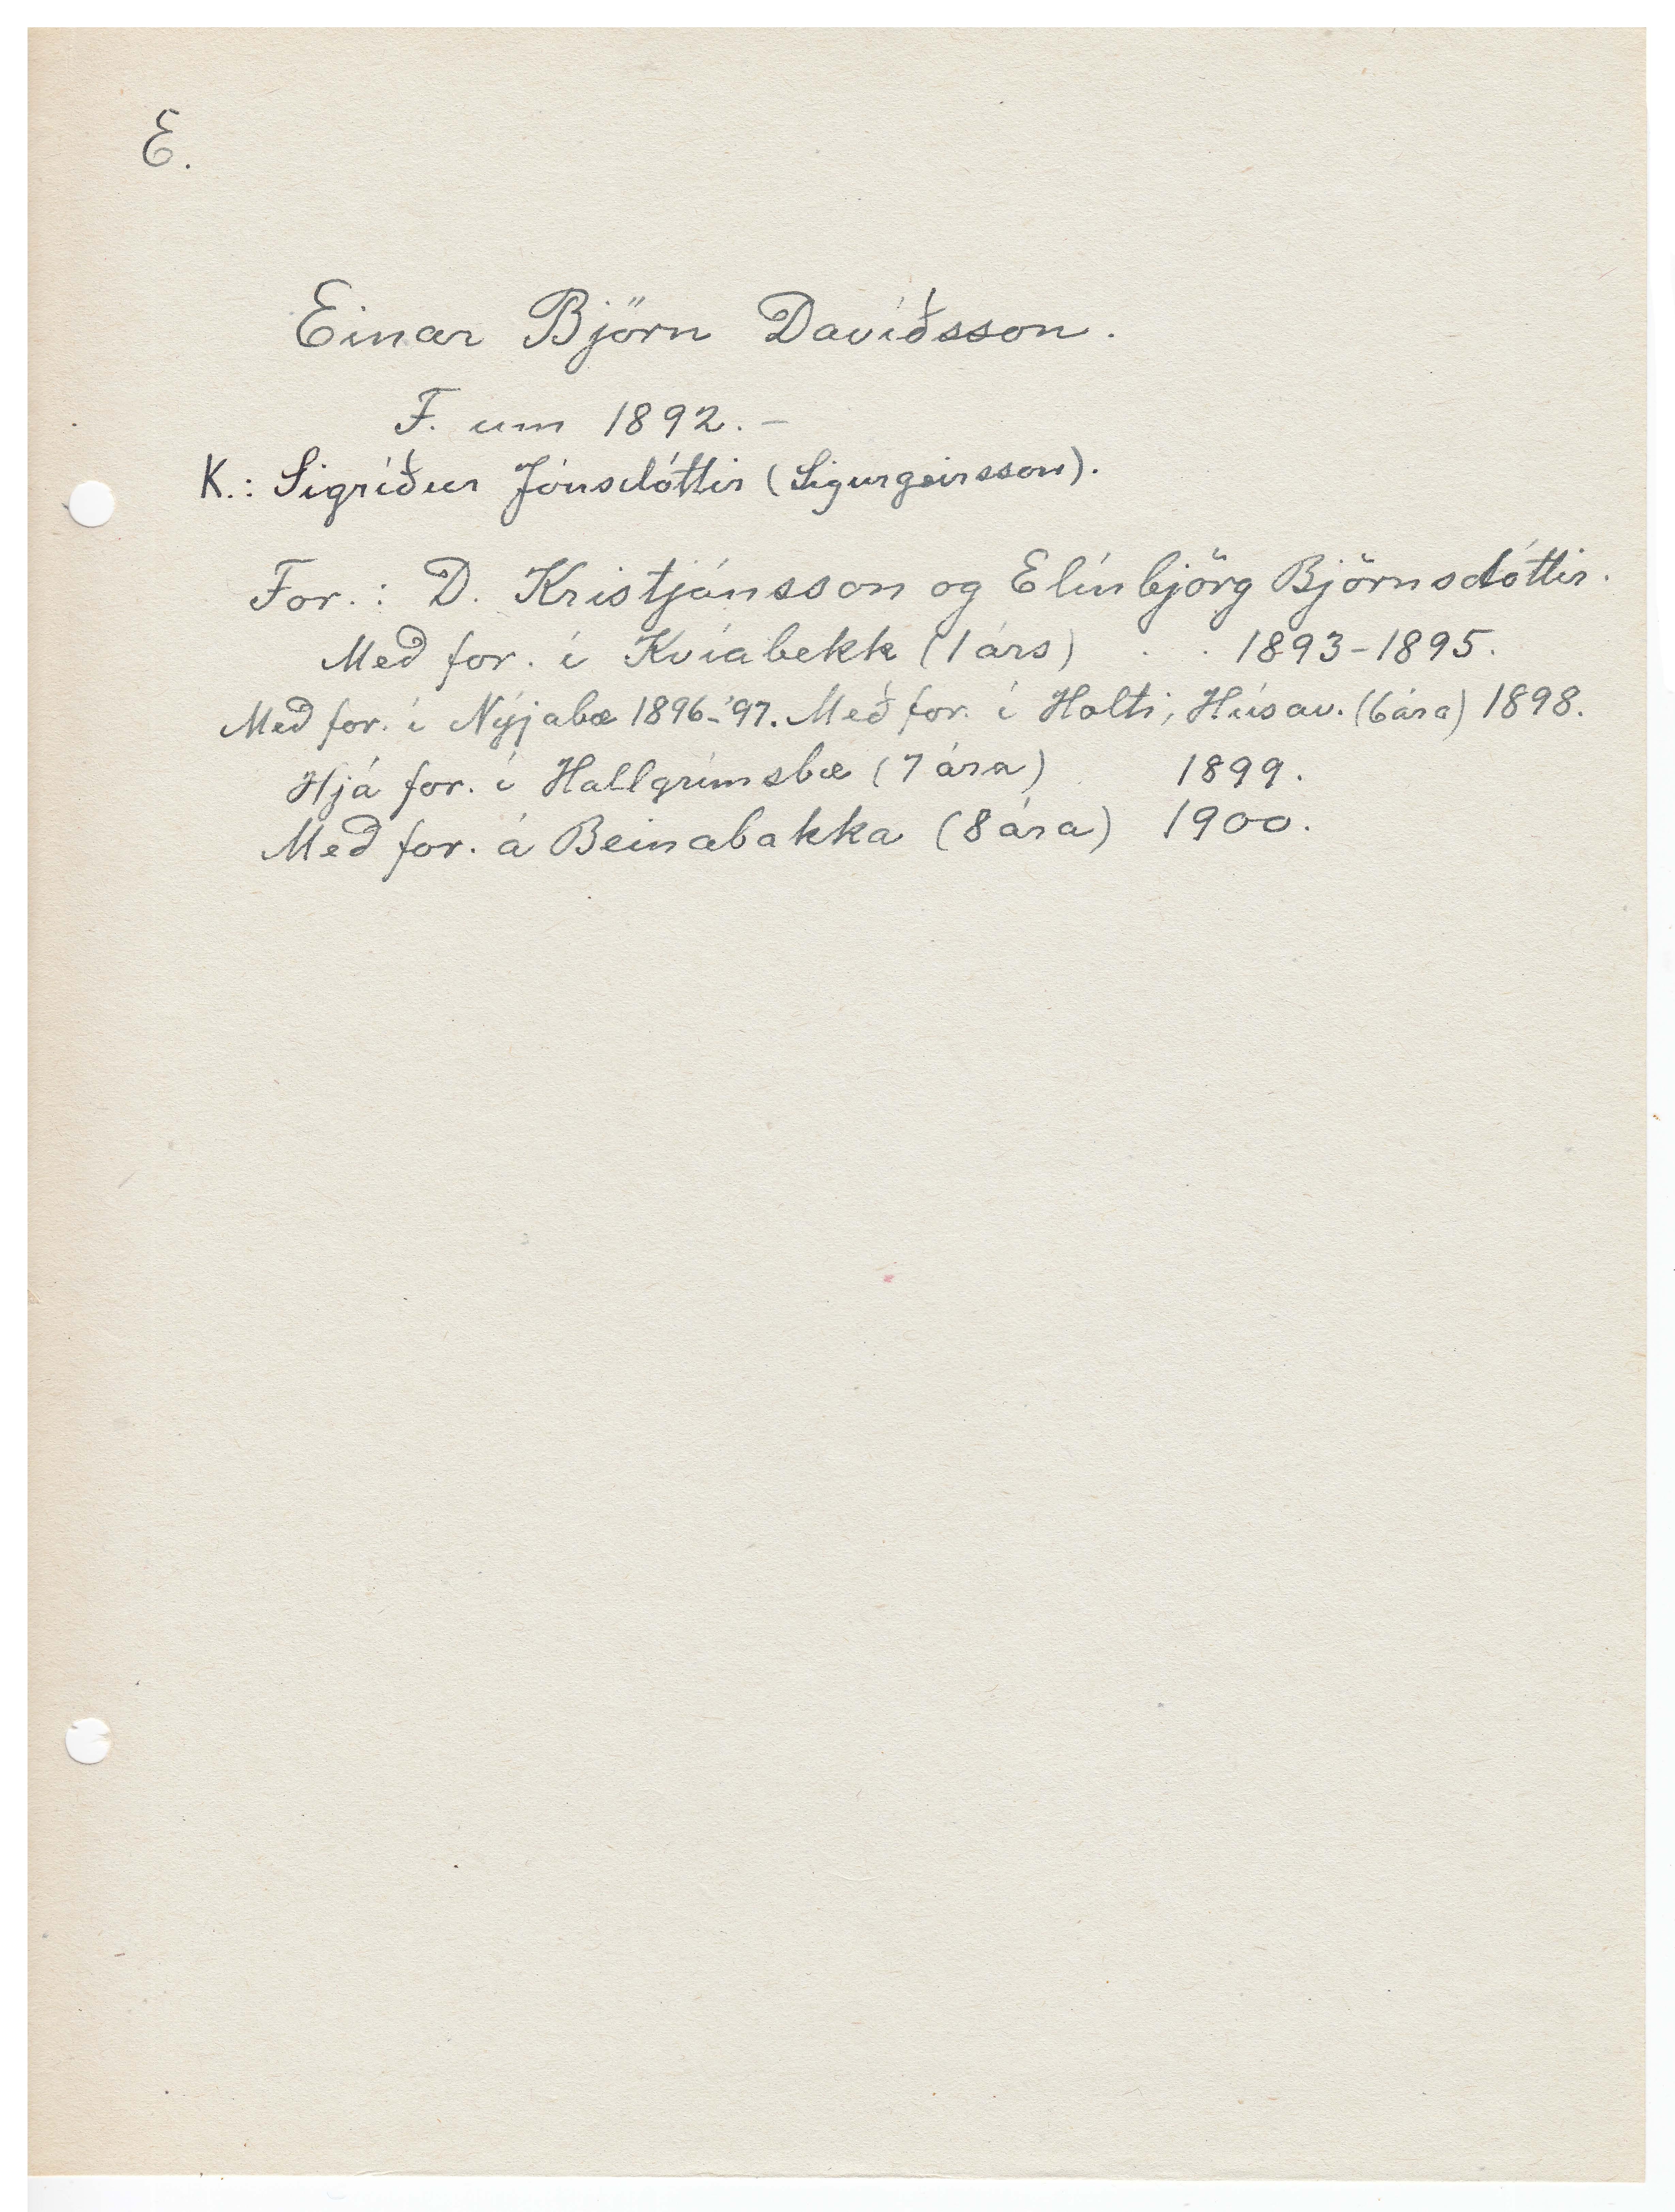 E.
Einar Björn Davíðsson.
F. um 1892. –
K.: Sigríður Jónsdóttir (Sigurgeirsson).
For.: D. Kristjánsson og Elínbjörg Björnsdóttir.
Með for. í Kvíabekk (1 árs) . . 1893-1895.
Með for. í Nýjabæ 1896-'97. Með for. í Holti, Húsav. (6 ára) 1898.
Hjá for. í Hallgrímsbæ (7 ára) 1899.
Með for. á Beinabakka (8 ára) 1900.